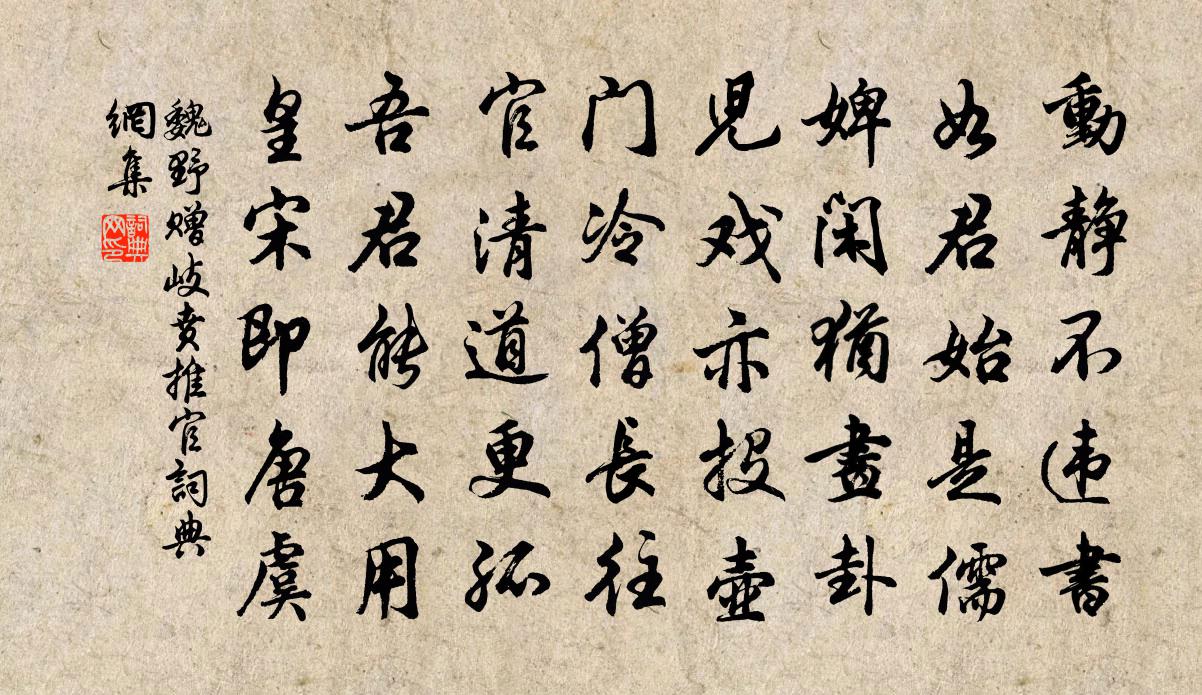 動静不违書
如君始是儒
婢闲猶畫卦
児戏亦投壺
门冷僧長往
官清道更孤
吾君能大用
皇宋即唐虞
魏野赠岐贲推官詞典
網集
詞典
网印